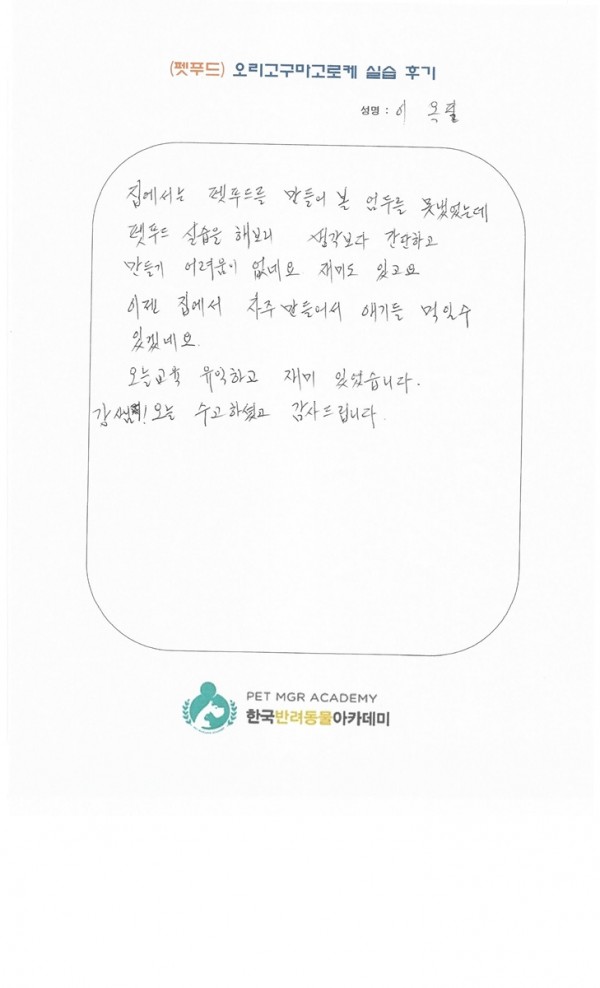 (펫푸드) 오리고구마고로케 실습 후기
성명 : 이 옥
집에서는 펫푸드를 만들어 볼 엄두를 못냈었는데
펫푸드 실습을 해보니 생각보다 간단하고
만들기 어려움이 없네요 재미도 있고요
이젠 집에서 자주 만들어서 애기들 먹일수
있겠네요.
오늘교육 유익하고 재미 있었습니다.
강쌤! 오늘 수고하셨고 감사드립니다.
PET MGR ACADEMY
한국반려동물아카데미